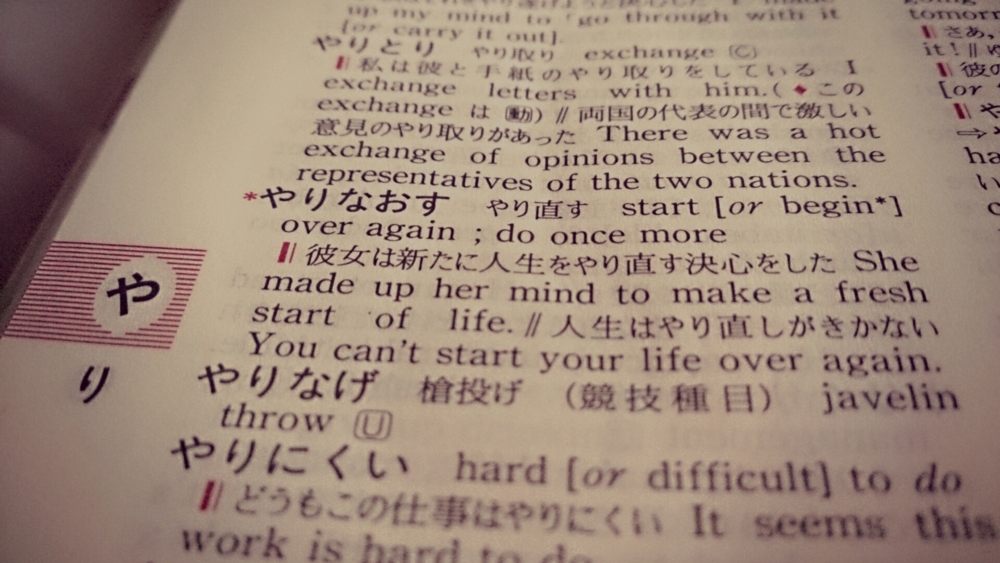 up my mind to「go through with it
[or carry it out].
やりとり やり取り exchange Ⓒ
‖私は彼と手紙のやり取りをしている I
exchange letters with him.(◆この
exchange は 動) // 両国の代表の間で激しい
意見のやり取りがあった There was a hot
exchange of opinions between the
representatives of the two nations.
*やりなおす やり直す start [or begin*]
over again ; do once more
‖彼女は新たに人生をやり直す決心をした She
made up her mind to make a fresh
start of life. // 人生はやり直しがきかない
You can't start your life over again.
やりなげ 槍投げ (競技種目) javelin
throw U
やりにくい hard [or difficult] to do
‖どうもこの仕事はやりにくい It seems this
work is hard to do
や
り
tomorr
‖さあ,
it! //
‖彼の
[or
‖や
⇒
ha
い